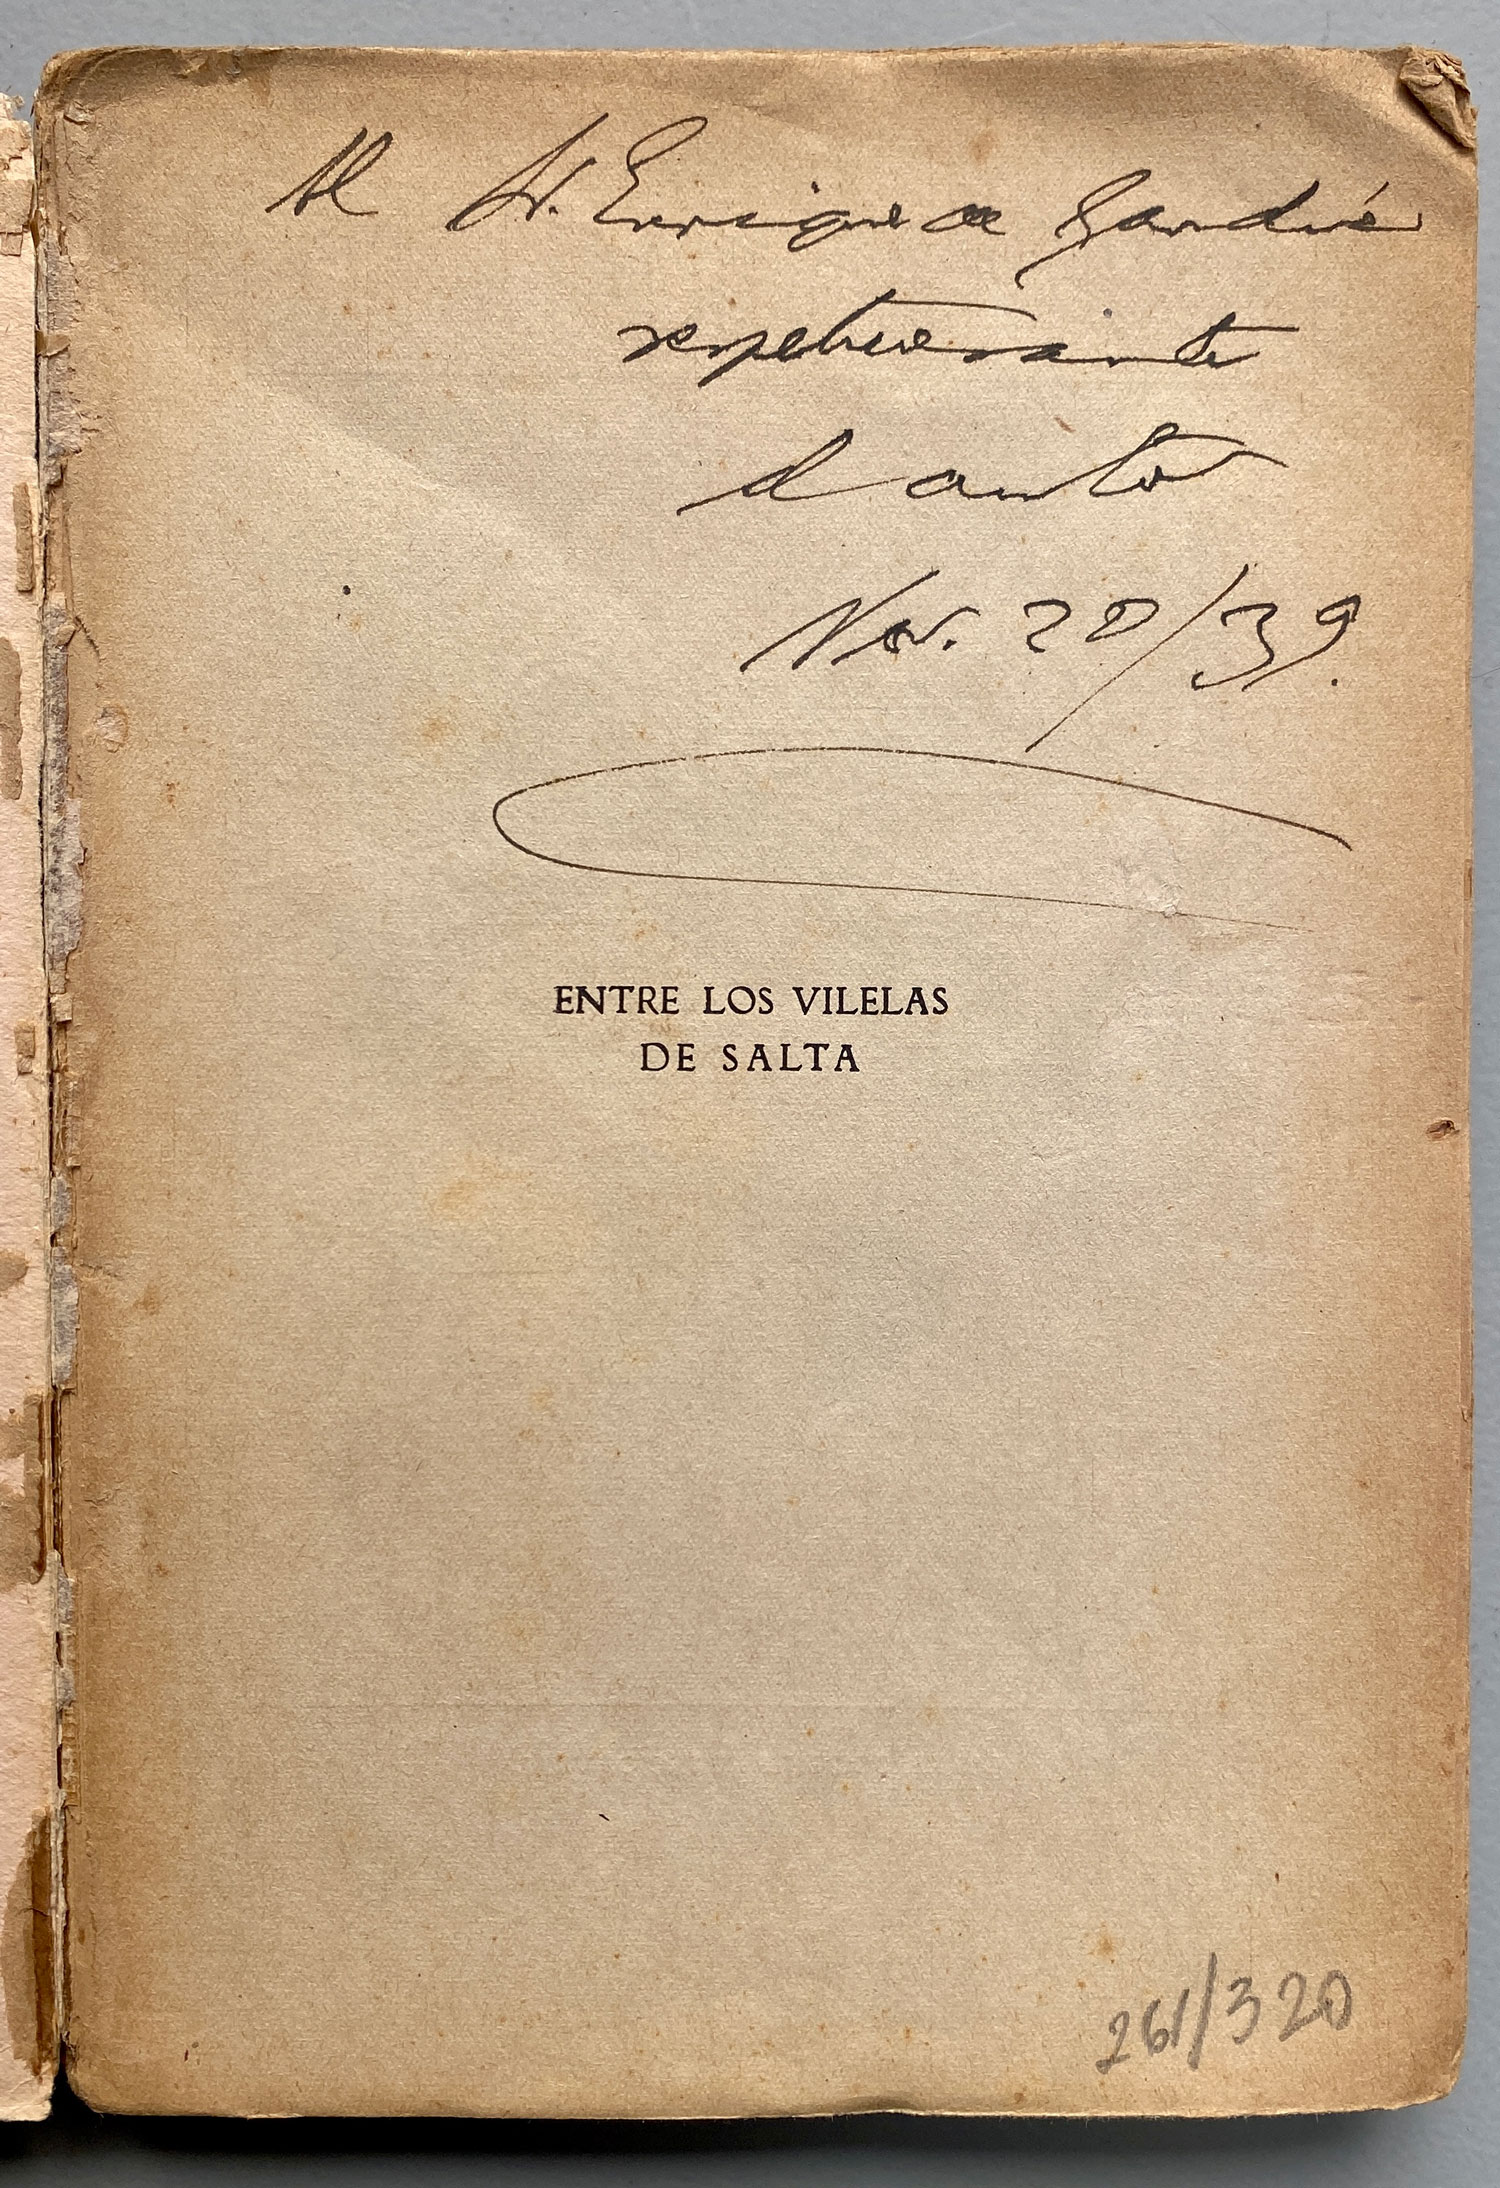 Al Sr. Enrique de Gandía
respetuosamente
el autor
Nov. 20/39.
ENTRE LOS VILELAS
DE SALTA
261/320